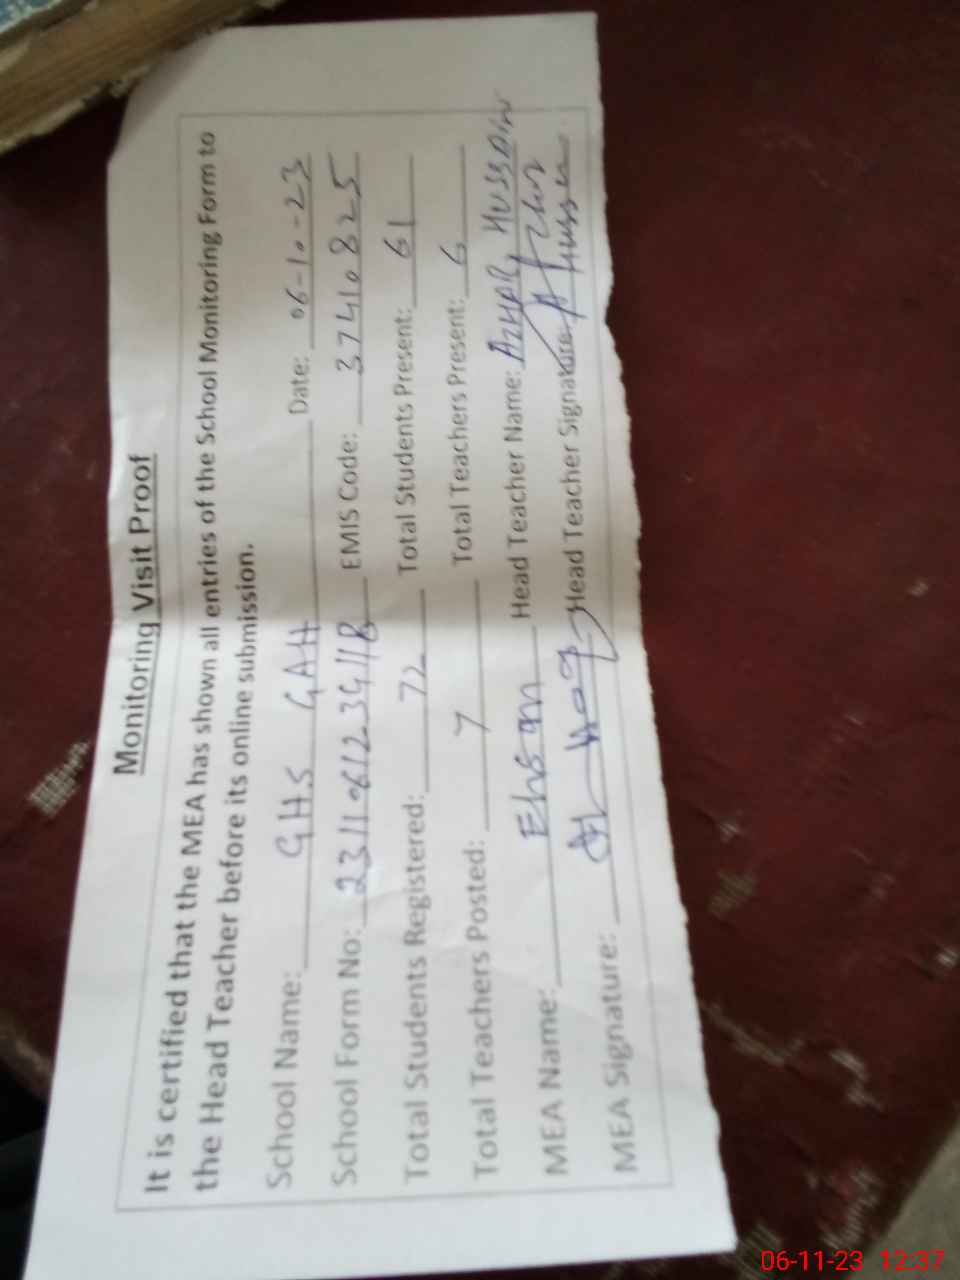 Monitoring Visit Proof
It is certified that the MEA has shown all entries of the School Monitoring Form to
the Head Teacher before its online submission.
School Name: GHS GAH Date: 06-10-23
School Form No: 2311061239118 EMIS Code: 37410825
Total Students Registered: 72 Total Students Present: 61
Total Teachers Posted: 7 Total Teachers Present: 6
MEA Name: Ehsan Head Teacher Name: AZHAR HUSSAIN
MEA Signature: Head Teacher Signature:
06-11-23 12:37